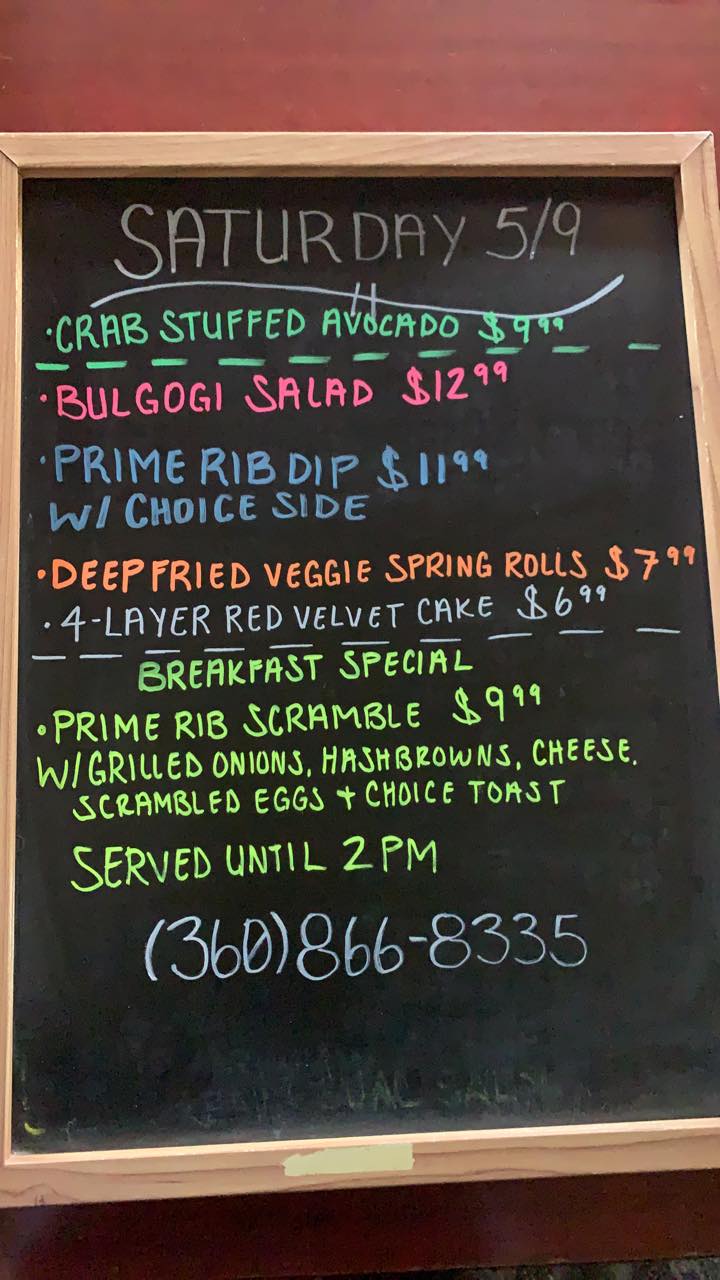 SATURDAY 5/9
·CRAB STUFFED AVOCADO $9⁹⁹
·BULGOGI SALAD $12⁹⁹
·PRIME RIB DIP $11⁹⁹
W/ CHOICE SIDE
·DEEP FRIED VEGGIE SPRING ROLLS $7⁹⁹
·4-LAYER RED VELVET CAKE $6⁹⁹
BREAKFAST SPECIAL
·PRIME RIB SCRAMBLE $9⁹⁹
W/GRILLED ONIONS, HASHBROWNS, CHEESE,
SCRAMBLED EGGS + CHOICE TOAST
SERVED UNTIL 2PM
(360)866-8335